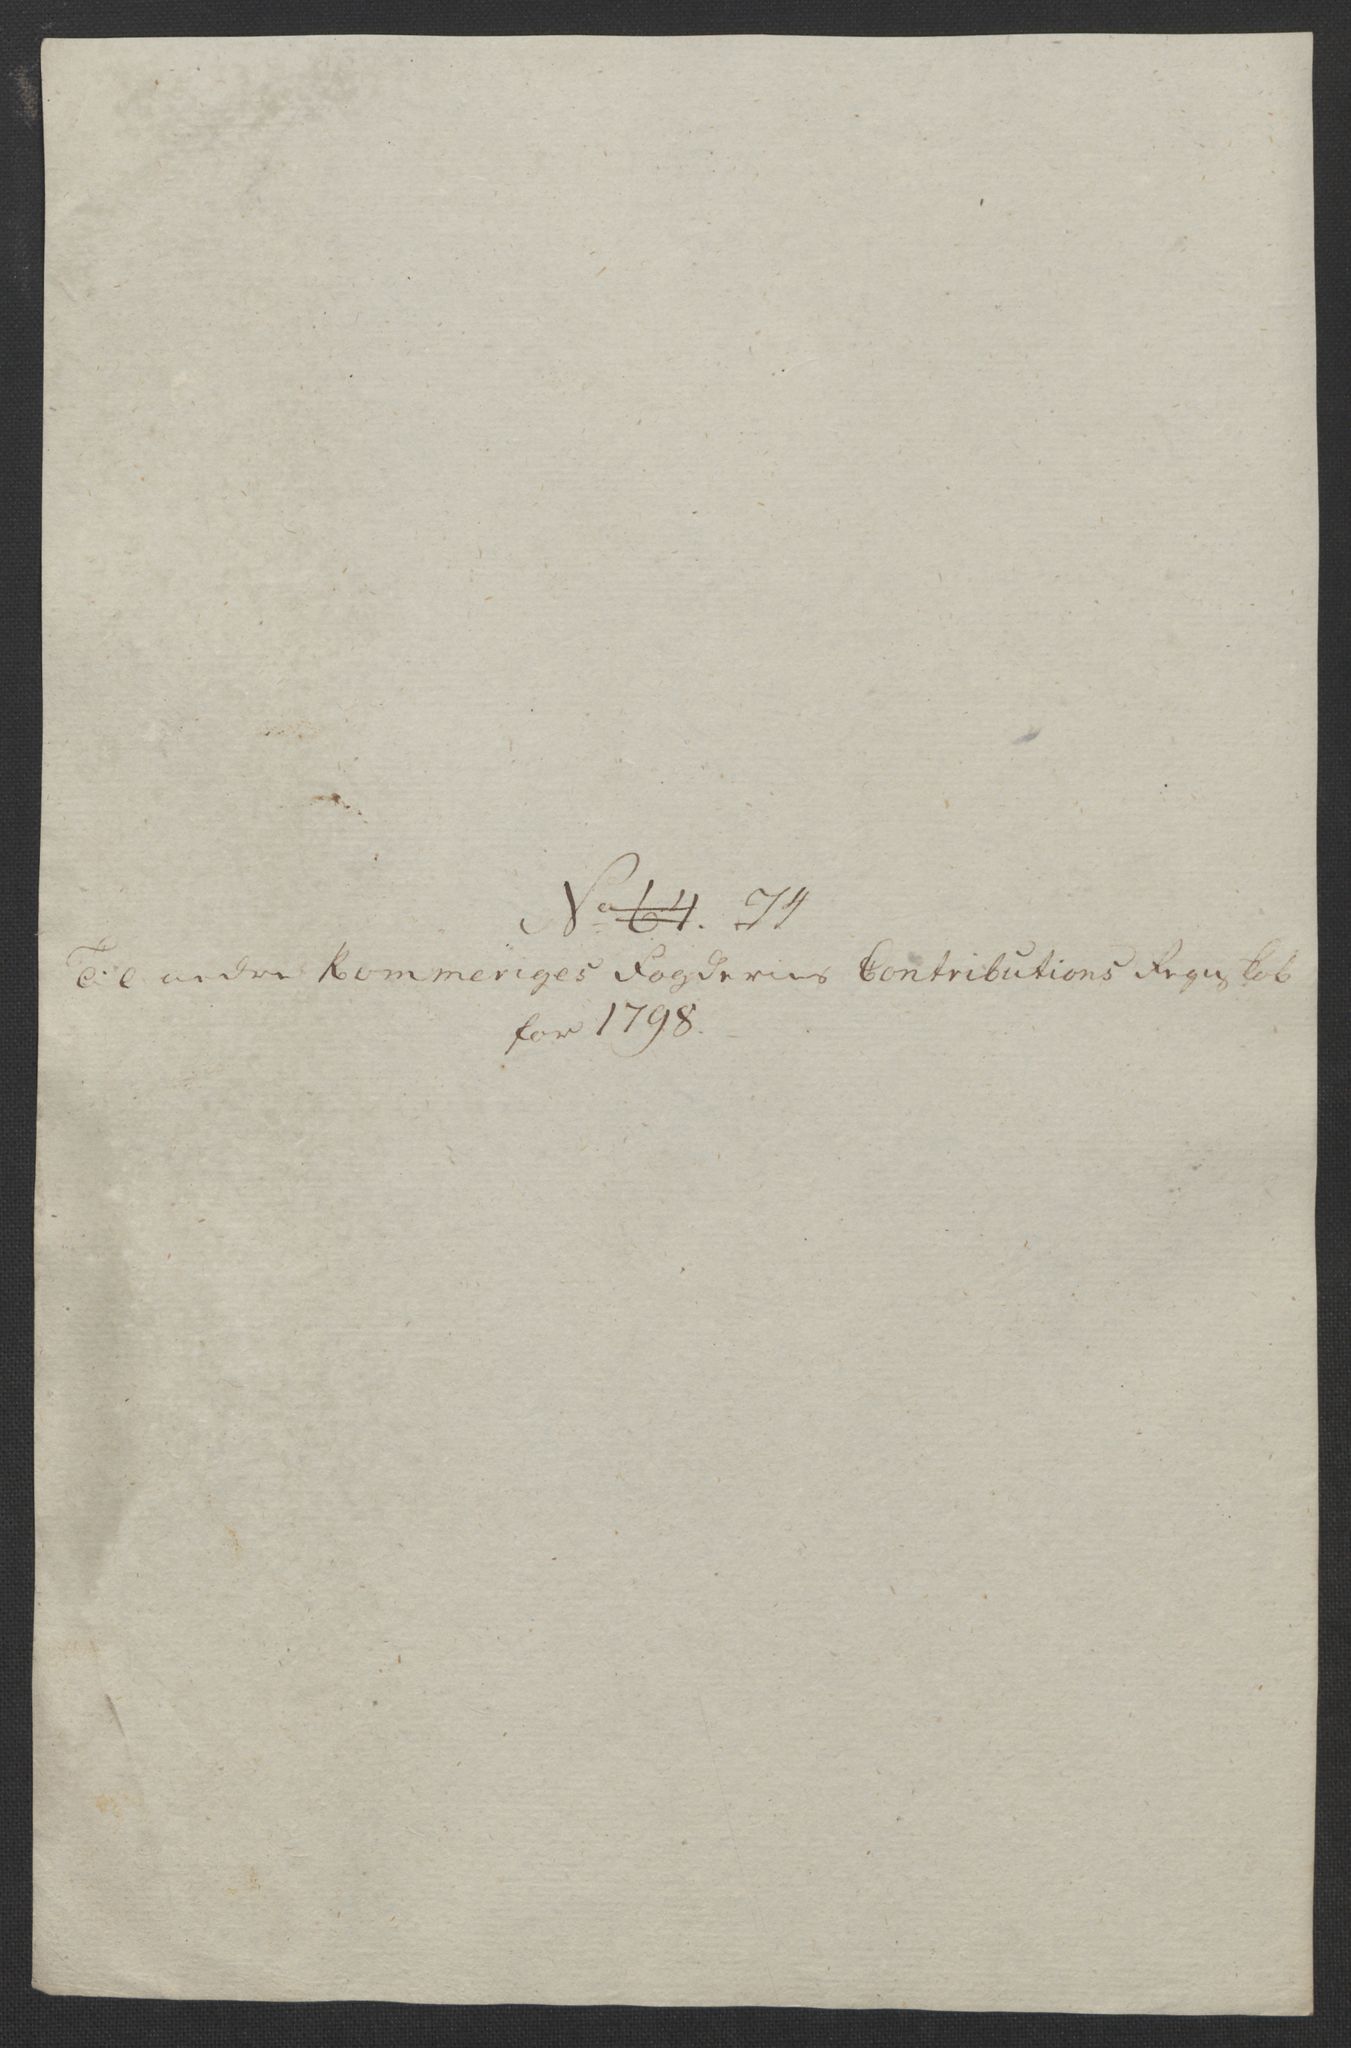 No 64. 74
Til nedre Rommeriges Fogderies Contributions Regnskab
for 1798.